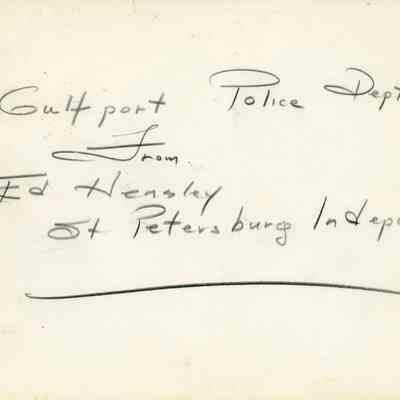 Gulfport Police Dept
From
Ed Hensley
St Petersburg Indep